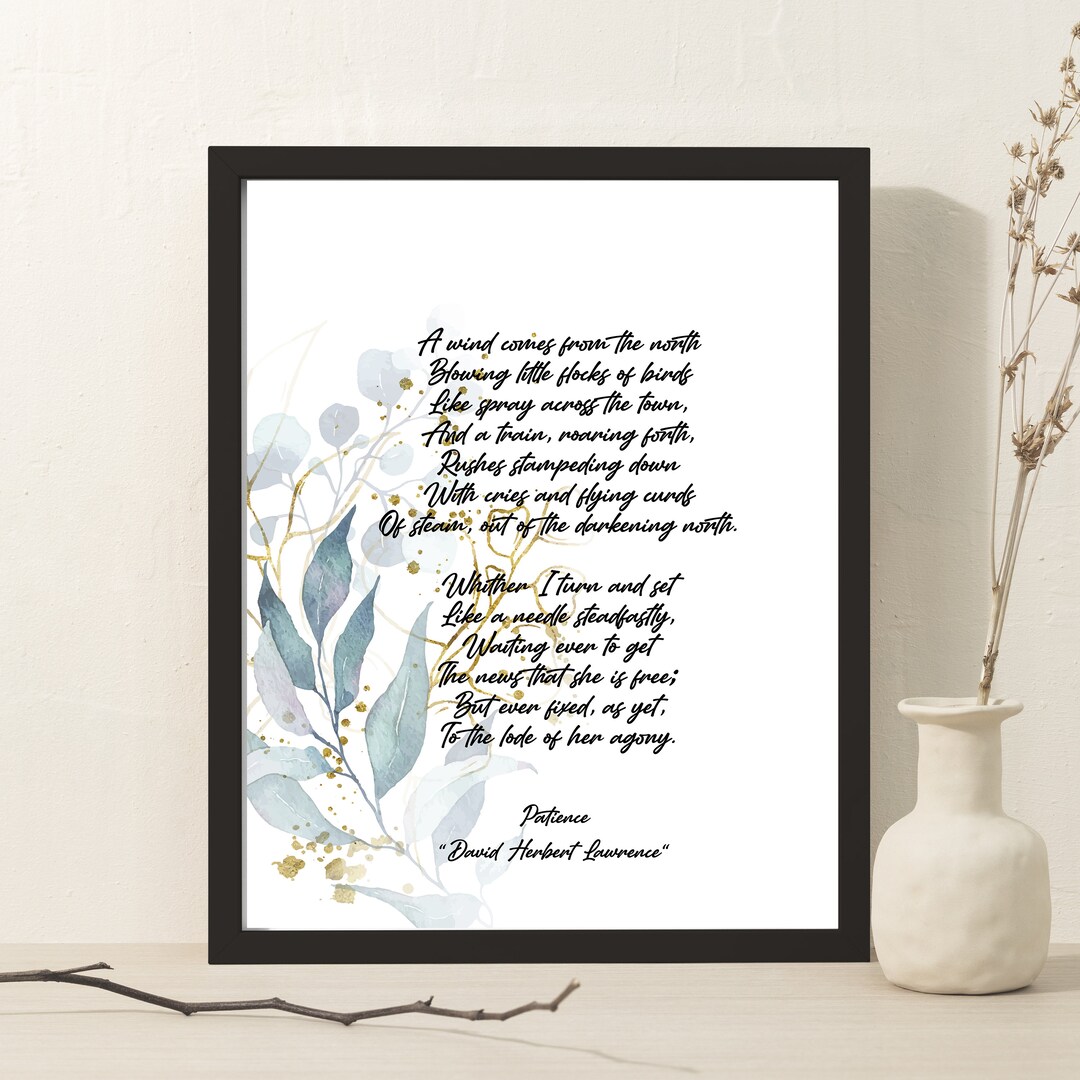 A wind comes from the north
Blowing little flocks of birds
Like spray across the town,
And a train, roaring forth,
Rushes stampeding down
With cries and flying curds
Of steam, out of the darkening north.
Whither I turn and set
Like a needle steadfastly,
Waiting ever to get
The news that she is free;
But ever fixed, as yet,
To the lode of her agony.
Patience
"David Herbert Lawrence"